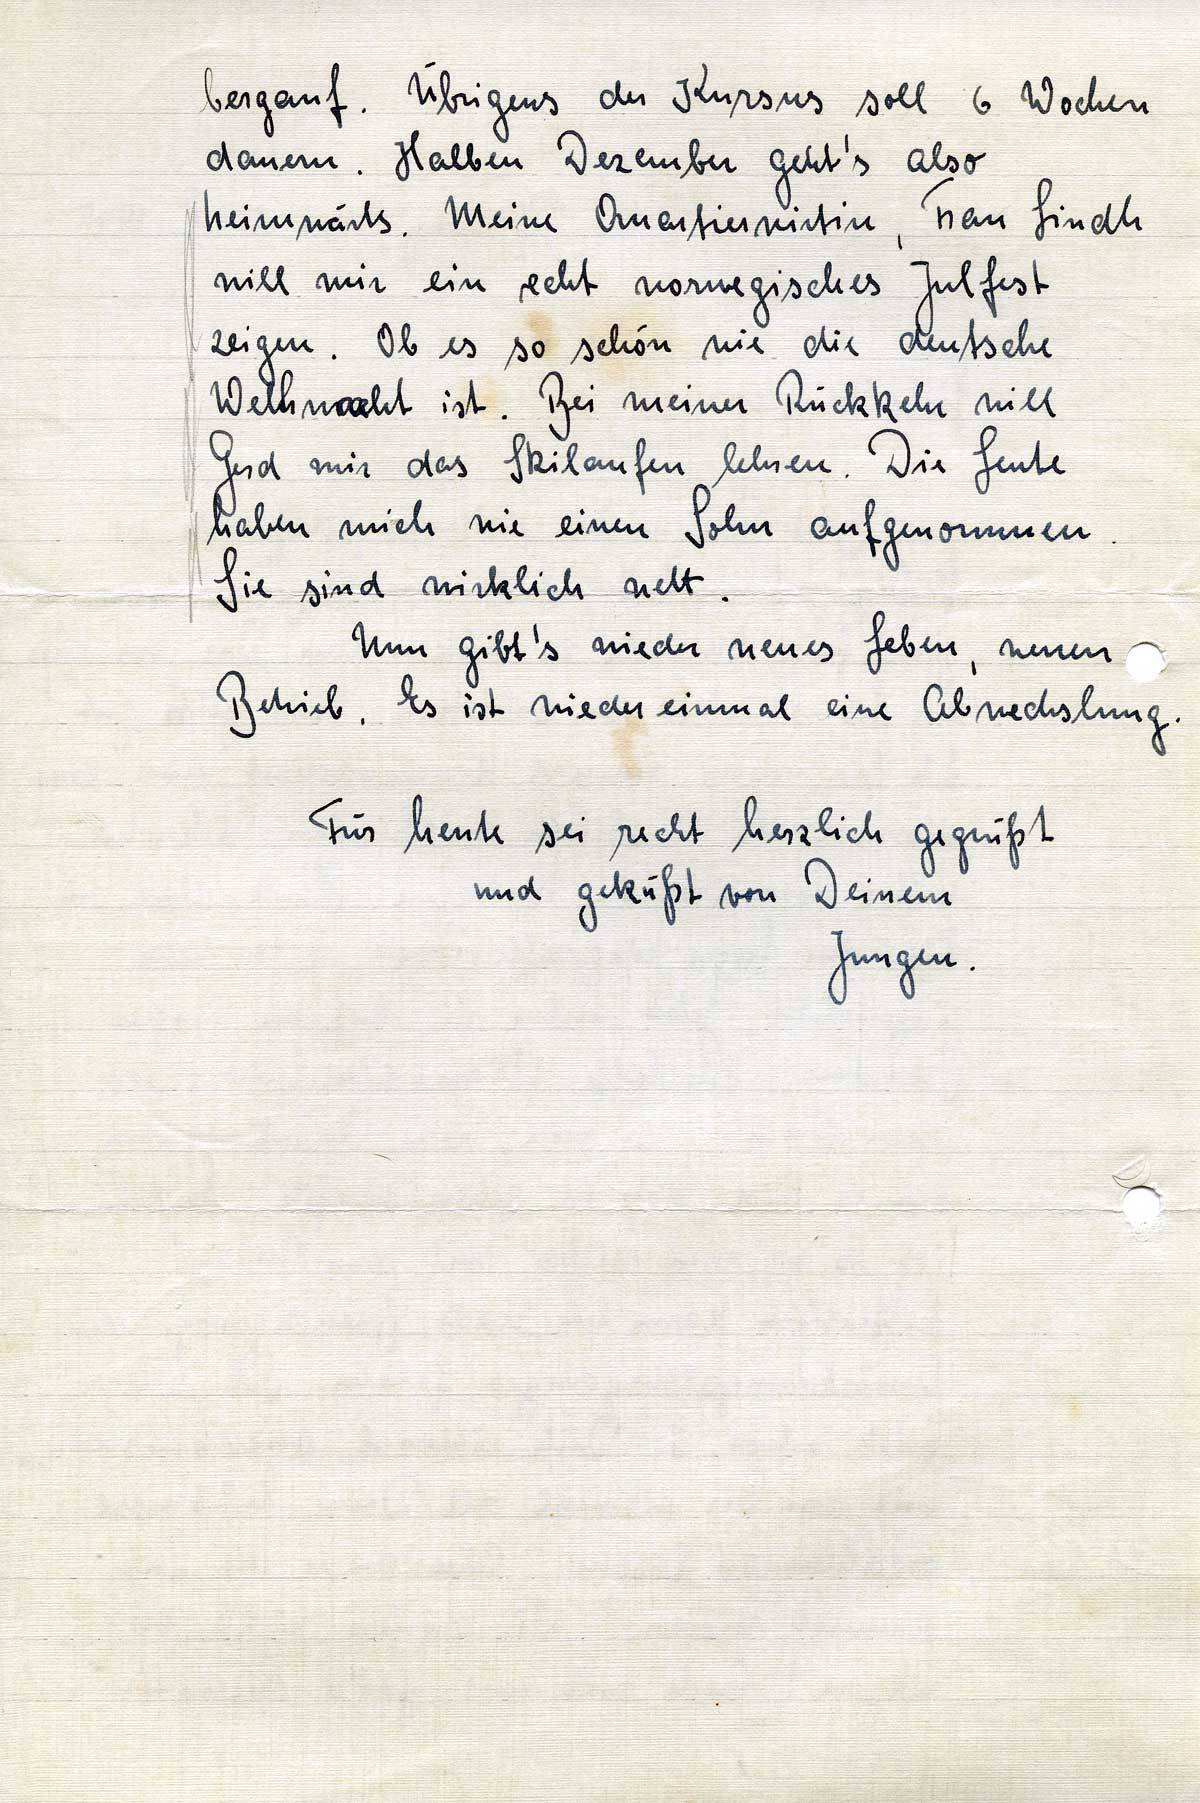 bergauf. Übrigens der Kursus soll 6 Wochen
dauern. Halben Dezember geht's also
heimwärts. Meine Quartierwirtin, Frau Lindh
will mir ein echt norwegisches Julfest
zeigen. Ob es so schön wie die deutsche
Weihnacht ist. Bei meiner Rückkehr will
Gerd mir das Skilaufen lehren. Die Leute
haben mich wie einen Sohn aufgenommen.
Sie sind wirklich nett.
Nun gibt's wieder neues Leben, neuen
Betrieb. Es ist wieder einmal eine Abwechslung.
Für heute sei recht herzlich gegrüßt
und geküßt von Deinem
Jungen.